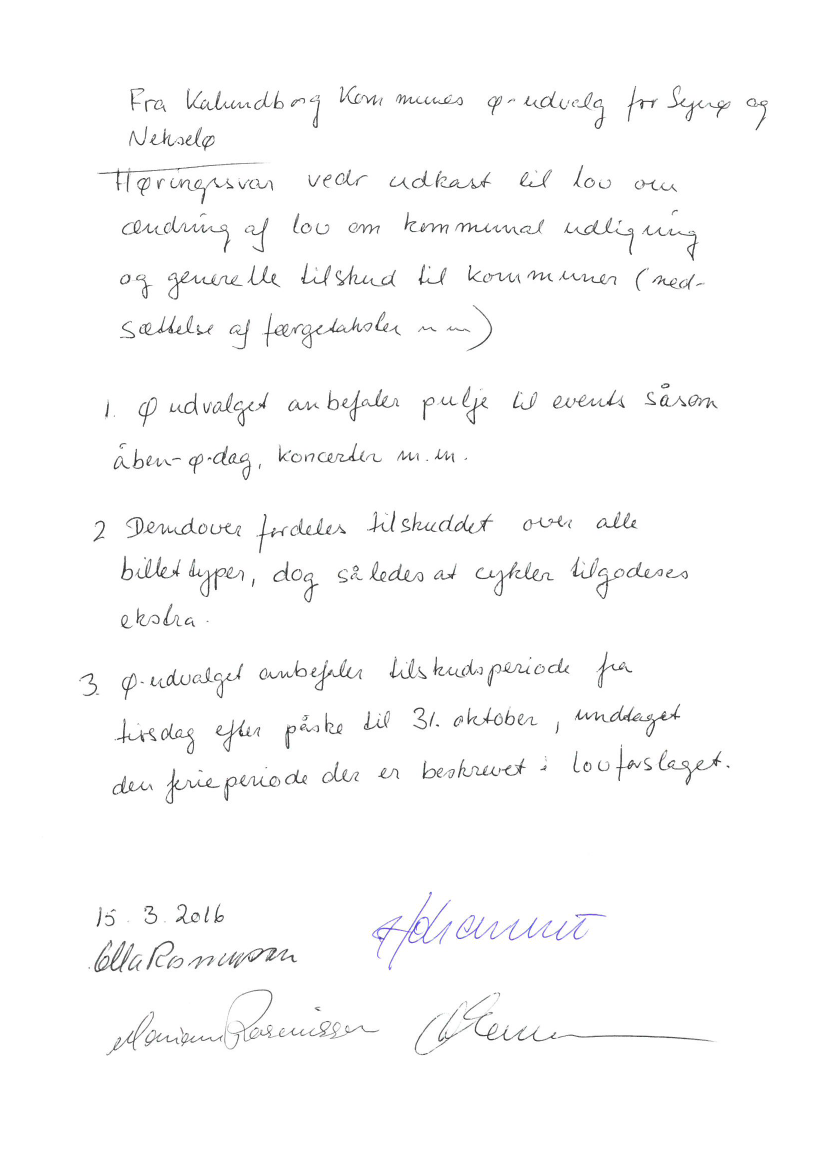 Fra Kalundborg Kommunes ø-udvalg for Sejerø og
Nekselø
Høringssvar vedr udkast til lov om
ændring af lov om kommunal udligning
og generelle tilskud til kommuner (ned-
sættelse af færgetakster m m)
1. Ø udvalget anbefaler pulje til events såsom
åben-ø-dag, koncerter m.m.
2 Derudover fordeles tilskuddet over alle
billettyper, dog således at cykler tilgodeses
ekstra.
3. Ø-udvalget anbefaler tilskudsperiode fra
tirsdag efter påske til 31. oktober, undtaget
den ferieperiode der er beskrevet i lovforslaget.
15.3.2016
Ulla Rasmussen
Mariann Rasmussen